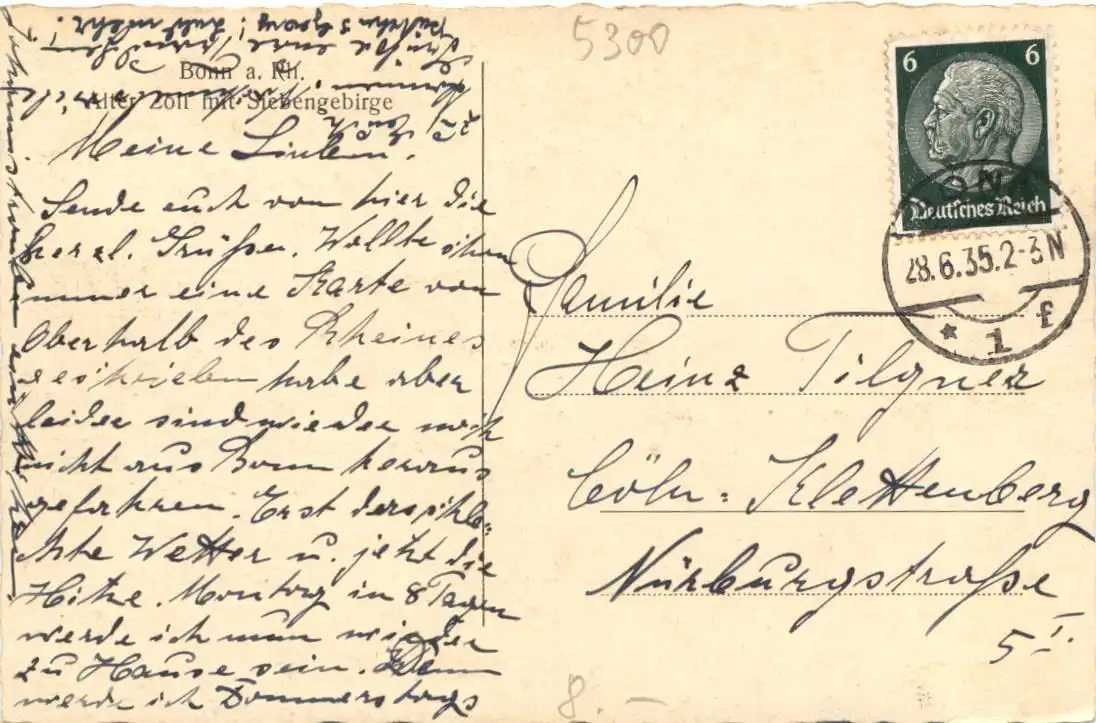 5300
Bonn a. Rh.
Alter Zoll mit Siebengebirge
Meine Lieben.
Sende euch von hier die
herzl. Grüße. Wollte schon
immer eine Karte von
Oberhalb des Rheines
geschrieben habe aber
leider sind wieder noch
nicht aus Bonn heraus
gefahren. Erst das schle-
chte Wetter u. jetzt die
Hitze. Montag in 8 Tagen
werde ich nun wieder
zu Hause sein. Dann
werde ich Donnerstags
zu Euch
kommen
Grüße
6 6
Deutsches Reich
BONN
28.6.35.2-3N
* 1 f
Familie
Heinz Tilgner
Cöln-Klettenberg
Nürburgstraße
5 I.
8.-